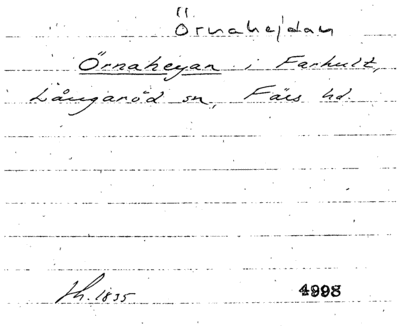 Örnahejdan
Örnaheyan i Farhult,
Långaröd sn, Färs hd.
1835
4998